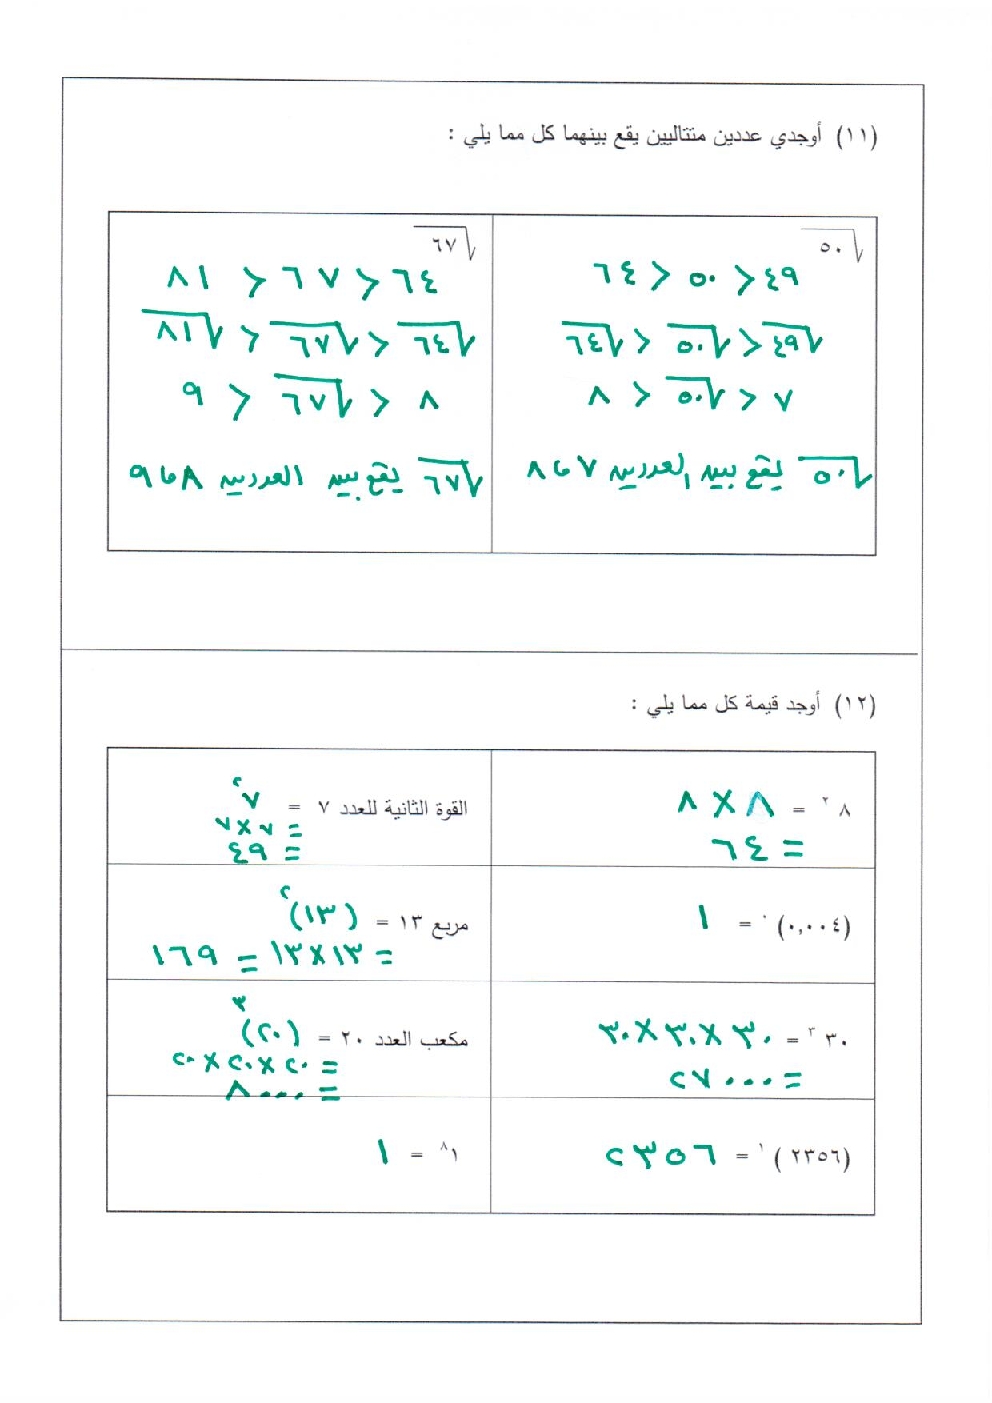 (١١) أوجدي عددين متتاليين يقع بينهما كل مما يلي :
√٥٠
٤٩ < ٥٠ < ٦٤
√٤٩ < √٥٠ < √٦٤
٧ < √٥٠ < ٨
√٥٠ يقع بين العددين ٧ و ٨
√٦٧
٦٤ < ٦٧ < ٨١
√٦٤ < √٦٧ < √٨١
٨ < √٦٧ < ٩
√٦٧ يقع بين العددين ٨ و ٩
(١٢) أوجد قيمة كل مما يلي :
٨² = ٨ × ٨
= ٦٤
القوة الثانية للعدد ٧ = ٧²
= ٧ × ٧
= ٤٩
(٠,٠٠٤)⁰ = ١
مربع ١٣ = (١٣)²
= ١٣ × ١٣ = ١٦٩
٣٠³ = ٣٠ × ٣٠ × ٣٠
= ٢٧٠٠٠
مكعب العدد ٢٠ = (٢٠)³
= ٢٠ × ٢٠ × ٢٠
= ٨٠٠٠
(٢٣٥٦)¹ = ٢٣٥٦
١⁸ = ١